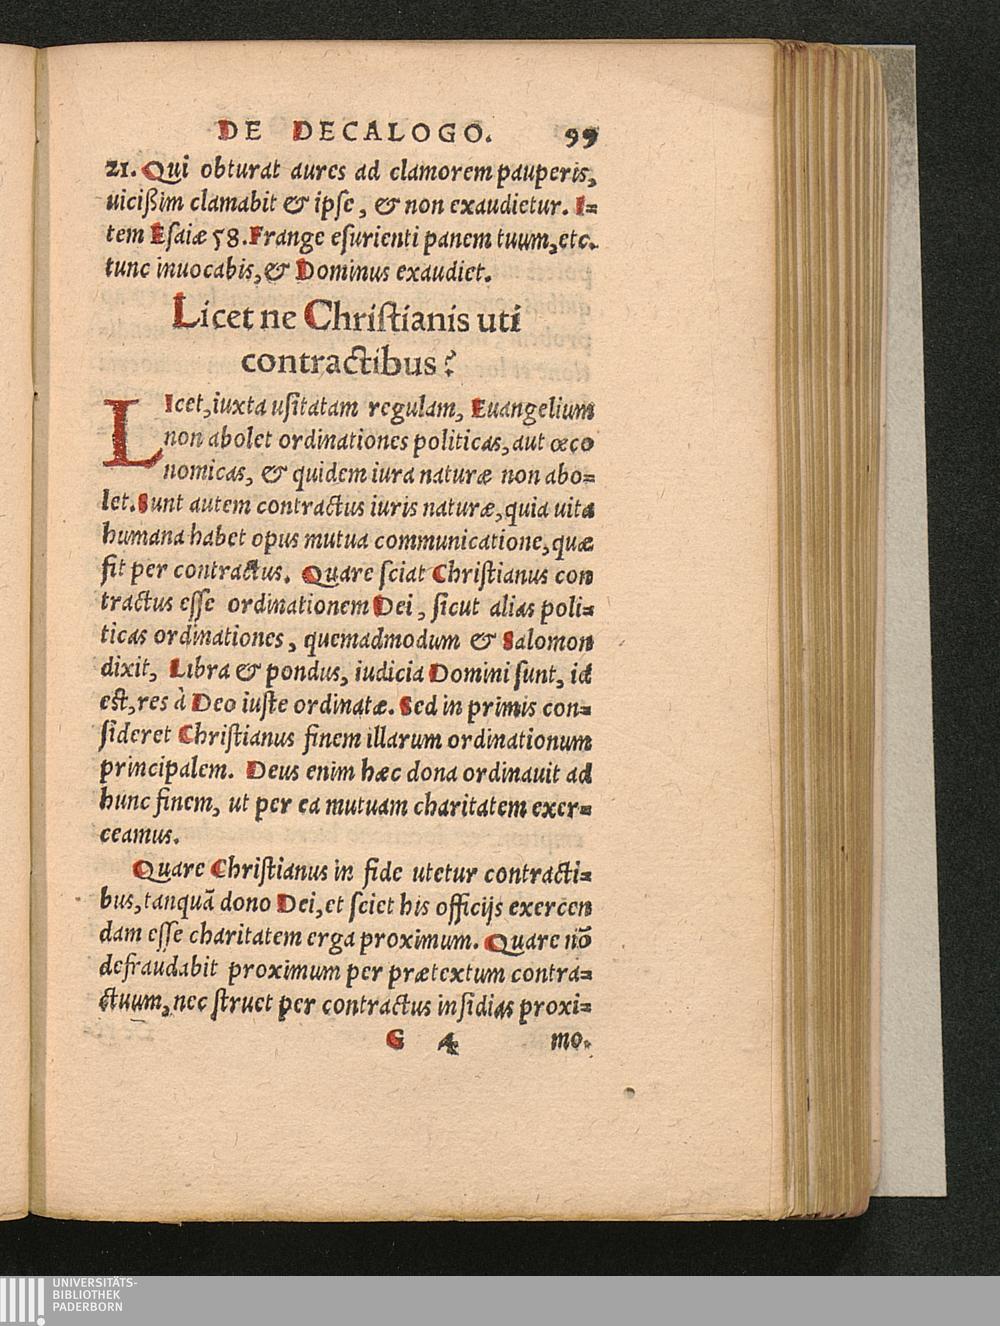 DE DECALOGO. 99
21. Qui obturat aures ad clamorem pauperis,
uicißim clamabit & ipſe, & non exaudietur. I-
tem Eſaiæ 58. Frange eſurienti panem tuum, etc.
tunc inuocabis, & Dominus exaudiet.
Licet ne Chriſtianis uti
contractibus?
LIcet, iuxta uſitatam regulam, Euangelium
non abolet ordinationes politicas, aut œco
nomicas, & quidem iura naturæ non abo-
let. Sunt autem contractus iuris naturæ, quia uita
humana habet opus mutua communicatione, quæ
fit per contractus. Quare ſciat Chriſtianus con
tractus eſſe ordinationem Dei, ſicut alias poli-
ticas ordinationes, quemadmodum & Salomon
dixit, Libra & pondus, iudicia Domini ſunt, id
eſt, res à Deo iuſte ordinatæ. Sed in primis con-
ſideret Chriſtianus finem illarum ordinationum
principalem. Deus enim hæc dona ordinauit ad
hunc finem, ut per ea mutuam charitatem exer-
ceamus.
Quare Chriſtianus in fide utetur contracti-
bus, tanquã dono Dei, et ſciet his officijs exercen
dam eſſe charitatem erga proximum. Quare nõ
defraudabit proximum per prætextum contra-
ctuum, nec ſtruet per contractus inſidias proxi-
G 4 mo.
UNIVERSITÄTS-
BIBLIOTHEK
PADERBORN